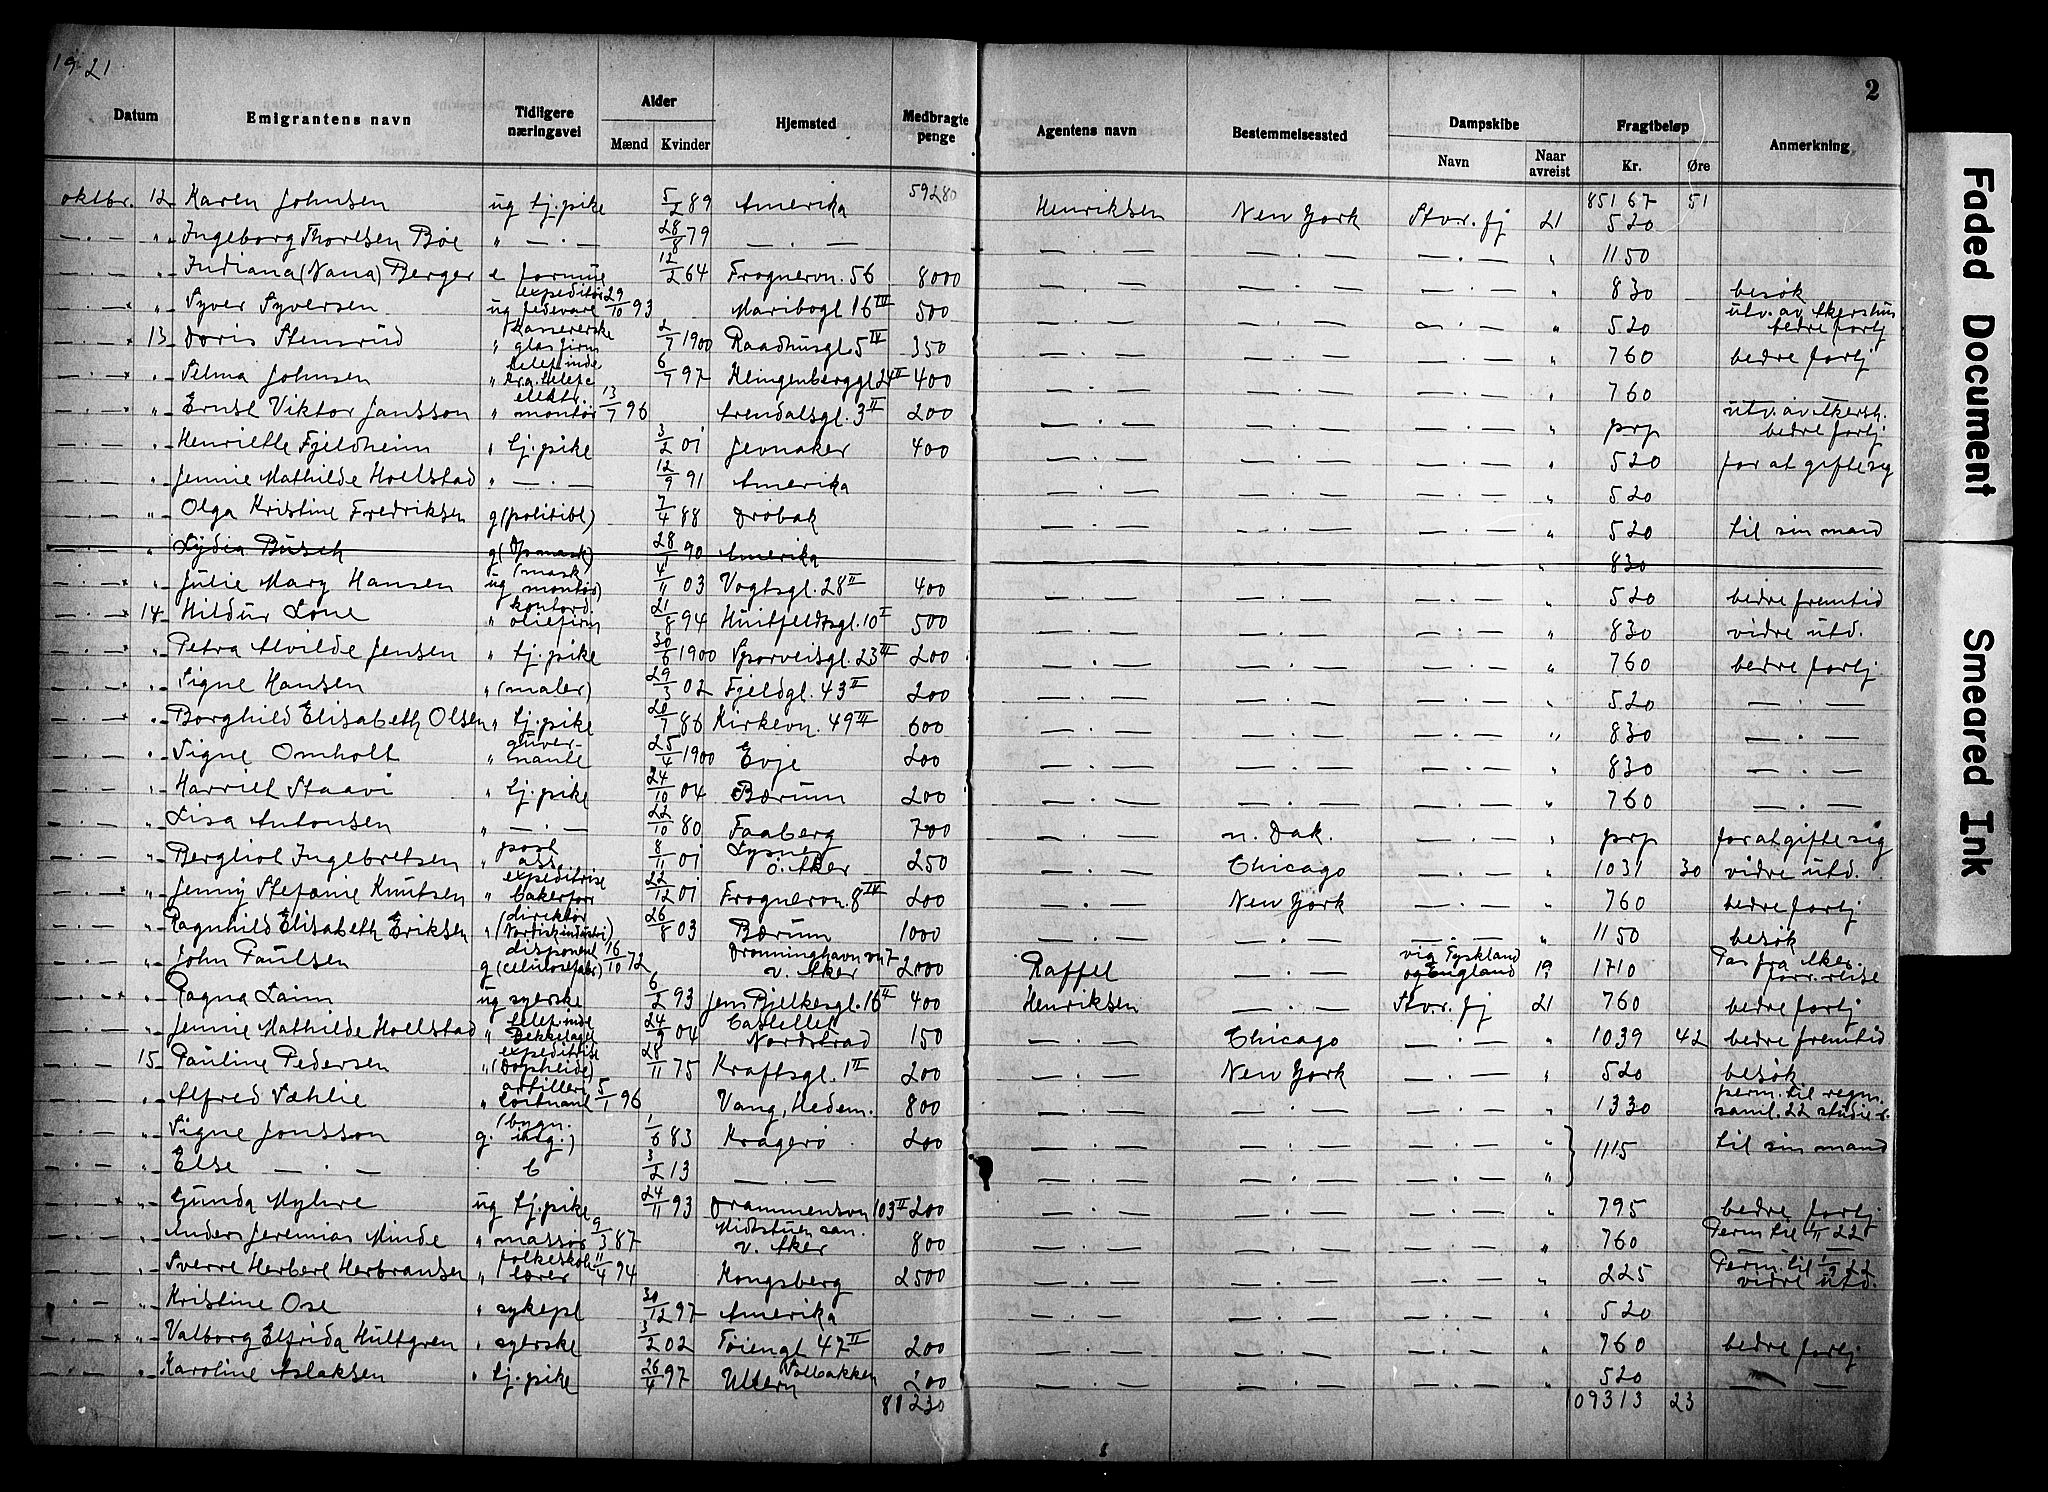 1921
2
Datum | Emigrantens navn | Tidligere næringsvei | Alder Mænd | Kvinder | Hjemsted | Medbragte penge | Agentens navn | Bestemmelsessted | Dampskibe Navn | Naar avreist | Fragtbeløp Kr. | Øre | Anmerkning
59280 | 85167 | 51
oktbr. 12 Karen Johnsen | ug tj.pike | 5/2 89 | Amerika | Henriksen | New York | Stvr.fj | 21 | 520
— . — " Ingeborg Thorelsen Bøe | " — . — | 28/8 79 | — . — | — . — | — . — | — . — | " | 1150
— . — " Indiana (Nana) Berger | e formue | 12/2 64 | Frognervn. 56 | 8000 | — . — | — . — | — . — | " | 830 | besøk
— . — * " Syver Syversen | ug expeditør fedevare | 29/10 93 | Maribogt 16 IV | 500 | — . — | — . — | — . — | " | 520 | utv. av Akershus bedre forhj
— . — * 13 Doris Stensrud | " kassererske glasfirm | 2/7 1900 | Raadhusgt. 5 IV | 350 | — . — | — . — | — . — | " | 760 | bedre forhj
— . — * " Selma Johnsen | " telef.inde Kra. telef | 6/7 97 | Klingenberggt 24 II | 400 | — . — | — . — | — . — | " | 760
— . — * " Ernst Viktor Jansson | " elektr. montør | 13/7 96 | Arendalsgt. 3 II | 200 | — . — | — . — | — . — | " | prp | utv. av Akersh. bedre forhj
— . — " Henriette Fjeldheim | " tj.pike | 3/2 01 | Jevnaker | 400 | — . — | — . — | — . — | " | 520 | for at gifte sig
— . — " Jennie Mathilde Hoelstad | " — . — | 12/9 91 | Amerika | — . — | — . — | — . — | " | 520
— . — " Olga Kristine Fredriksen | g (politibt) | 7/4 88 | Drøbak | — . — | — . — | — . — | " | 520 | til sin mand
— . — " Lydia Busch | g (Dpmask) | 28/1 90 | Amerika | " | 830
— . — * " Julie Mary Hansen | ug (mask montør) | 4/11 03 | Vogtsgt. 28 II | 400 | — . — | — . — | — . — | " | 520 | bedre fremtid
— . — * 14 Hildur Lone | " kontord. oliefirm | 21/8 94 | Huitfeldtsgt. 10 I | 500 | — . — | — . — | — . — | " | 830 | vidre utd.
— . — * " Petra Alvilde Jensen | " tj.pike | 30/6 1900 | Sporveisgt. 23 III | 200 | — . — | — . — | — . — | " | 760 | bedre forhj
— . — * " Signe Hansen | " (maler) | 29/3 02 | Fjeldgt. 43 II | 200 | — . — | — . — | — . — | " | 520 | — . —
— . — * " Borghild Elisabeth Olsen | " tj.pike | 20/7 86 | Kirkevn. 49 III | 600 | — . — | — . — | — . — | " | 830 | — . —
— . — " Signe Omholt | " guvernante | 25/4 1900 | Evje | 200 | — . — | — . — | — . — | " | 830 | — . —
— . — " Harriet Staavi | " tj.pike | 24/10 04 | Bærum | 200 | — . — | — . — | — . — | " | 760 | — . —
— . — " Lisa Antonsen | " — . — | 22/10 80 | Faaberg | 700 | — . — | n. Dak. | — . — | " | prp | for at gifte sig
— . — " Bergliot Ingebretsen | " post ass. | 8/11 01 | Lysner ø. Aker | 250 | — . — | Chicago | — . — | " | 1031 | 30 | vidre utd.
— . — * " Jenny Stefanie Knutsen | " expeditrise bakerforr | 22/12 01 | Frognervn. 8 IV | 200 | — . — | New York | — . — | " | 760 | bedre forhj
— . — " Ragnhild Elisabeth Eriksen | " (direktør Nordiskindustri) | 26/8 03 | Bærum | 1000 | — . — | — . — | — . — | " | 1150 | besøk
— . — " John Paulsen | g disponent (celulosefabr) | 16/10 72 | Dronninghavnvn 7 v. Aker | 2000 | Raffel | — . — | via Tyskland og England | 19 | 1710 | Pas fra Aker forr.reise
— . — * " Ragna Laim | ug syerske | 6/2 93 | Jens Bjelkesgt. 16 II | 400 | Henriksen | — . — | Stvr. fj | 21 | 760 | bedre forhj
— . — " Jennie Mathilde Hoelstad | " telef.inde Bekkelaget | 24/9 04 | Castellet Nordstrad | 150 | — . — | Chicago | — . — | " | 1039 | 42 | bedre fremtid
— . — 15 Pauline Pedersen | " expeditrise (Dopheide) | 28/11 75 | Kraftsgt. 1 II | 200 | — . — | New York | — . — | " | 520 | besøk
— . — " Alfred Væhlie | " artilleri løitnant | 5/1 96 | Vang, Hedem. | 800 | — . — | — . — | — . — | " | 1330 | perm. til regm. saml. 22 studie
— . — " Signe Jonsson | g. (bygn. intg.) | 1/6 83 | Kragerø | 200 | — . — | — . — | — . — | " | 1115 | til sin mand
— . — " Else — . — | b | 3/2 13 | — . — | — . — | — . — | — . — | "
— . — * " Gunda Myhre | ug tj.pike | 24/11 93 | Drammensvn 103 II | 200 | — . — | — . — | — . — | " | 795 | bedre forhj
— . — " Anders Jeremias Minde | " massør | 9/3 87 | Midtstuen san. v. Aker | 800 | — . — | — . — | — . — | " | 760 | Perm til 1/11 22
— . — " Sverre Herbert Herbransen | " folkeskole lærer | 11/4 94 | Kongsberg | 2500 | — . — | — . — | — . — | " | 225 | Perm. til 1/9 22 vidre utd.
— . — " Kristine Ose | " sykepl | 30/12 97 | Amerika | — . — | — . — | — . — | " | 520
— . — * " Valborg Elfrida Hultgren | " syerske | 3/2 02 | Tøiengt 47 II | 200 | — . — | — . — | — . — | " | 760 | bedre forhj
— . — " Karoline Aslaksen | " tj.pike | 26/4 97 | Ullern Volbakken | 200 | — . — | — . — | — . — | " | 520 | — —
81230 | 109313 | 23
Faded Document
Smeared Ink